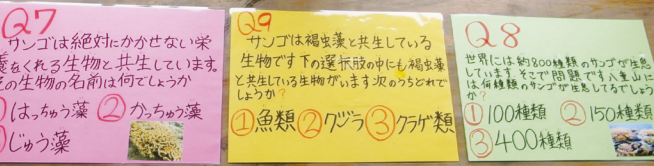 Q7
サンゴは絶対にかかせない栄
養をくれる生物と共生しています。
その生物の名前は何でしょうか
①はっちゅう藻 ②かっちゅう藻
③じゅう藻
Q9
サンゴは褐虫藻と共生している
生物です下の選択肢の中にも褐虫藻
と共生している生物がいます次のうちどれで
しょうか?
①魚類 ②クジラ ③クラゲ類
Q8
世界には約800種類のサンゴが生息
しています。そこで問題です八重山に
は何種類のサンゴが生息してるでしょう
か?
①100種類 ②150種類
③400種類